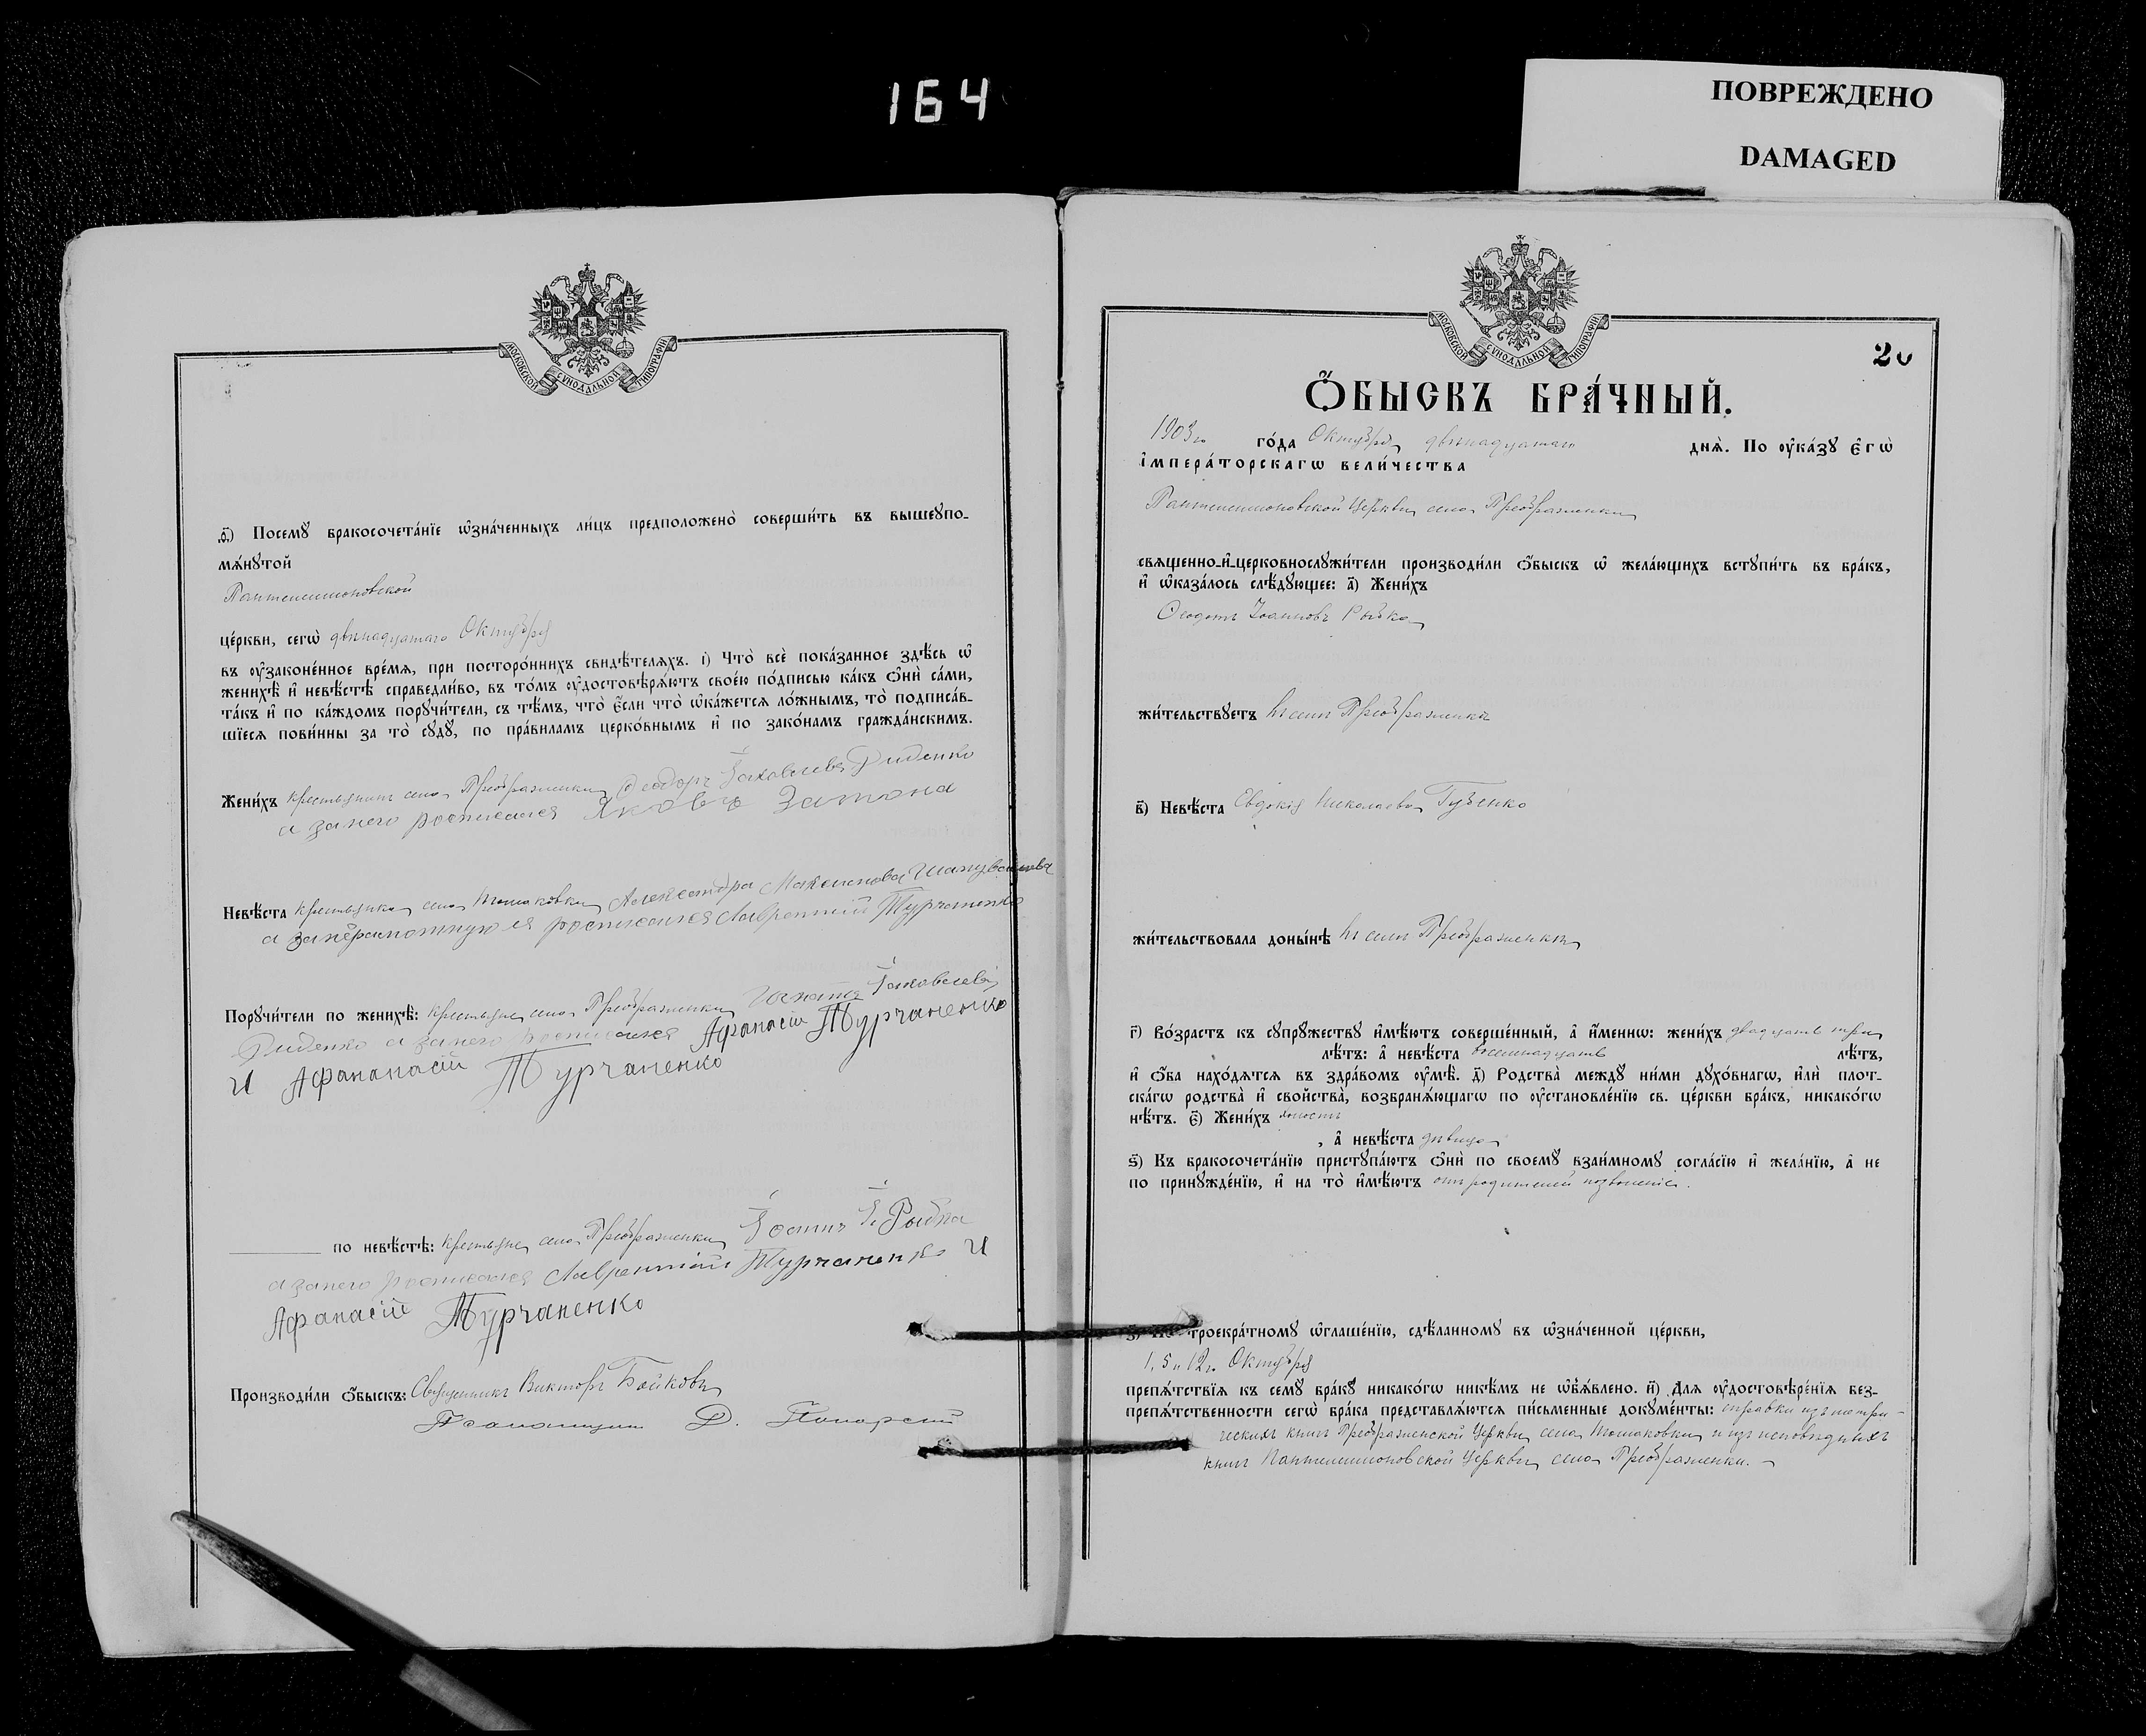 164
ПОВРЕЖДЕНО
DAMAGED
МОСКОВСКОЙ СУНОДАЛЬНОЙ ТИПОГРАФІИ
д҃і) Посемꙋ бракосочета́нїе ѡ҆зна́ченныхъ ли́цъ предположено̀ соверши́ть въ вышеꙋпо-
мѧ́нꙋтой
Пантелеимоновской
це́ркви, сегѡ̀ двѣнадцатаго Октября
въ ᲂу҆законе́нное вре́мѧ, при посторо́ннихъ свидѣ́телѧхъ. і҃) Что̀ всѐ пока́занное здѣ́сь ѡ҆
женихѣ̀ и҆ невѣ́стѣ справедли́во, въ то́мъ ᲂу҆достовѣрѧ́ютъ свое́ю по́дписью ка́къ ѻ҆нѝ са́ми,
та́къ и҆ по ка́ждомъ порꙋчи́тели, съ тѣ́мъ, что̀ є҆́сли что̀ ѡ҆ка́жетсѧ ло́жнымъ, то̀ подписа́в-
шїесѧ пови́нны за то̀ сꙋдꙋ̀, по пра́виламъ церко́внымъ и҆ по зако́намъ гражда́нскимъ.
Жени́хъ крестьянинъ села Преображенки Ѳеодоръ Іаковлевъ Руденко
а за него росписался Яковъ Затона
Невѣ́ста крестьянка села Томаковки Александра Максимова Шаповалова
а за неграмотную ея росписался Лаврентій Турчаненко
Порꙋчи́тели по женихѣ̀: крестьяне села Преображенки Игнатъ Іаковлевъ
Руденко а за него росписался Афанасій Турчаненко
И Афананасій Турчаненко
по невѣ́стѣ: крестьяне села Преображенки Іоаннъ І. Рыбка
а за него росписался Лаврентій Турчаненко И
Афанасій Турчаненко
Производи́ли ѻ҆́быскъ: Священникъ Викторъ Бойковъ
Псаломщикъ Д.
МОСКОВСКОЙ СУНОДАЛЬНОЙ ТИПОГРАФІИ
20
Ѻ҆́БЫСКЪ БРА́ЧНЫЙ.
1903го го́да Октября двѣнадцатаго днѧ̀. По ᲂу҆ка́зꙋ є҆гѡ̀
і҆мпера́торскагѡ вели́чества
Пантелеимоновской Церкви села Преображенки
свѧщенно-и҆-церковнослꙋжи́тели производи́ли ѻ҆́быскъ ѡ҆ жела́ющихъ встꙋпи́ть въ бра́къ,
и҆ ѡ҆каза́лось слѣ́дꙋющее: а҃) Жени́хъ
Ѳеодотъ Іоанновъ Рыбка
жи́тельствꙋетъ въ селѣ Преображенкѣ
в҃) Невѣ́ста Евдокія Николаева Губенко
жи́тельствовала доны́нѣ въ селѣ Преображенкѣ
г҃) Во́зрастъ къ сꙋпрꙋ́жествꙋ и҆мѣ́ютъ соверше́нный, а҆ и҆́меннѡ: жени́хъ двадцать три
лѣ́тъ: а҆ невѣ́ста восемнадцать лѣ́тъ,
и҆ ѻ҆́ба нахо́дѧтсѧ въ здра́вомъ ᲂу҆мѣ̀. д҃) Родства̀ междꙋ ни́ми дꙋхо́внагѡ, и҆лѝ плот-
ска́гѡ родства̀ и҆ сво́йства̀, возбранѧ́ющагѡ по ᲂу҆становле́нїю св. це́ркви бра́къ, никако́гѡ
нѣ́тъ. є҃) Жени́хъ холостъ
, а҆ невѣ́ста дѣвица
ѕ҃) Къ бракосочета́нїю пристꙋпа́ютъ ѻ҆нѝ по своемꙋ̀ взаи́мномꙋ согла́сїю и҆ жела́нїю, а҆ не
по принꙋжде́нїю, и҆ на то̀ и҆мѣ́ютъ отъ родителей позволеніе.
з҃) По троекра́тномꙋ ѡ҆глаше́нїю, сдѣ́ланномꙋ въ ѡ҆зна́ченной це́ркви,
1, 5 и 12го Октября
препѧ́тствїѧ къ семꙋ̀ бра́кꙋ никако́гѡ никѣ́мъ не ѡ҆б̾ѧ́влено. и҃) Длѧ ᲂу҆достовѣре́нїѧ без-
препѧ́тственности сегѡ̀ бра́ка представлѧ́ютсѧ пи́сьменные докꙋме́нты: справки изъ метри-
ческихъ книгъ Преображенской Церкви села Томаковки и изъ исповѣдныхъ
книгъ Пантелеимоновской Церкви села Преображенки.